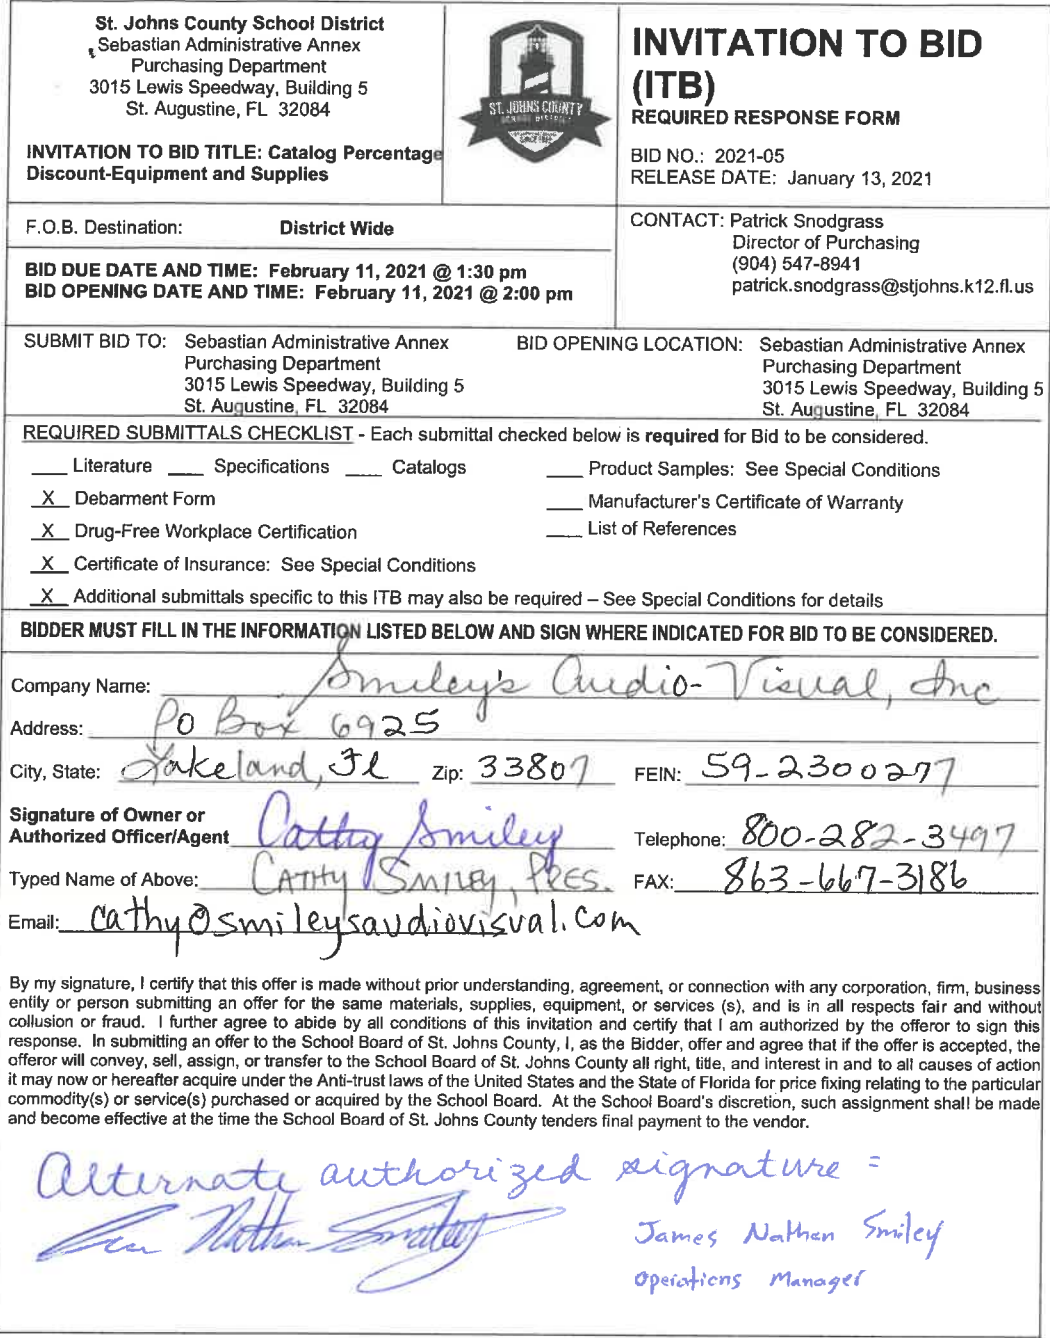 St. Johns County School District
Sebastian Administrative Annex
Purchasing Department
3015 Lewis Speedway, Building 5
St. Augustine, FL 32084
INVITATION TO BID TITLE: Catalog Percentage
Discount-Equipment and Supplies
ST. JOHNS COUNTY
SCHOOL DISTRICT
INVITATION TO BID
(ITB)
REQUIRED RESPONSE FORM
BID NO.: 2021-05
RELEASE DATE: January 13, 2021
F.O.B. Destination: District Wide
BID DUE DATE AND TIME: February 11, 2021 @ 1:30 pm
BID OPENING DATE AND TIME: February 11, 2021 @ 2:00 pm
CONTACT: Patrick Snodgrass
Director of Purchasing
(904) 547-8941
patrick.snodgrass@stjohns.k12.fl.us
SUBMIT BID TO: Sebastian Administrative Annex
Purchasing Department
3015 Lewis Speedway, Building 5
St. Augustine, FL 32084
BID OPENING LOCATION: Sebastian Administrative Annex
Purchasing Department
3015 Lewis Speedway, Building 5
St. Augustine, FL 32084
REQUIRED SUBMITTALS CHECKLIST - Each submittal checked below is required for Bid to be considered.
___ Literature ___ Specifications ___ Catalogs ___ Product Samples: See Special Conditions
X Debarment Form ___ Manufacturer's Certificate of Warranty
X Drug-Free Workplace Certification ___ List of References
X Certificate of Insurance: See Special Conditions
X Additional submittals specific to this ITB may also be required – See Special Conditions for details
BIDDER MUST FILL IN THE INFORMATION LISTED BELOW AND SIGN WHERE INDICATED FOR BID TO BE CONSIDERED.
Company Name: Smiley's Audio-Visual, Inc
Address: PO Box 6925
City, State: Lakeland, Fl Zip: 33807 FEIN: 59-2300277
Signature of Owner or
Authorized Officer/Agent Cathy Smiley Telephone: 800-282-3497
Typed Name of Above: CATHY SMILEY, PRES. FAX: 863-667-3186
Email: cathy@smileysaudiovisual.com
By my signature, I certify that this offer is made without prior understanding, agreement, or connection with any corporation, firm, business
entity or person submitting an offer for the same materials, supplies, equipment, or services (s), and is in all respects fair and without
collusion or fraud. I further agree to abide by all conditions of this invitation and certify that I am authorized by the offeror to sign this
response. In submitting an offer to the School Board of St. Johns County, I, as the Bidder, offer and agree that if the offer is accepted, the
offeror will convey, sell, assign, or transfer to the School Board of St. Johns County all right, title, and interest in and to all causes of action
it may now or hereafter acquire under the Anti-trust laws of the United States and the State of Florida for price fixing relating to the particular
commodity(s) or service(s) purchased or acquired by the School Board. At the School Board's discretion, such assignment shall be made
and become effective at the time the School Board of St. Johns County tenders final payment to the vendor.
Alternate authorized signature =
Nathan Smiley
James Nathan Smiley
Operations Manager